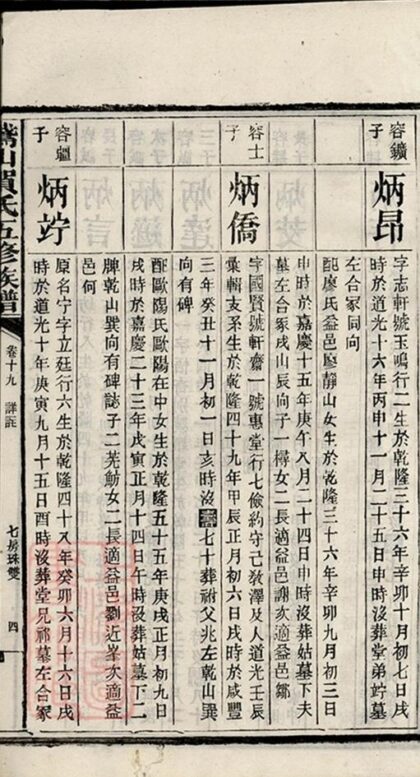 容鑛子
炳昂
字志軒號玉鳴行二生於乾隆三十六年辛卯十月初七日戌
時於道光十六年丙申十一月二十五日申時沒葬堂弟竚墓
左合冢同向
配廖氏益邑廖靜山女生於乾隆三十六年辛卯九月初三日
申時於嘉慶十五年庚午八月二十四日申時沒葬姑墓下夫
墓左合冢戌山辰向子一樽女二長適益邑謝次適益邑鄒
容士子
炳僑
字國賢號軒齋一號惠堂行七儉約守己敎澤及人道光壬辰
彙輯支系生於乾隆四十九年甲辰正月初六日戌時於咸豐
三年癸丑十一月初一日亥時沒壽七十葬祔父兆左乾山巽
向有碑
配歐陽氏歐陽在中女生於乾隆五十五年庚戌正月初九日
戌時於嘉慶二十三年戊寅正月十四日午時沒葬姑墓下二
牌乾山巽向有碑誌子二芜舫女二長適益邑劉近峯次適益
邑何
容疆子
炳竚
原名宁字立廷行六生於乾隆四十八年癸卯六月十六日戌
時於道光十年庚寅九月十五日酉時沒葬堂兄祁墓左合冢
山賀氏五修族譜
卷十九
詳註
七房珠雙
四